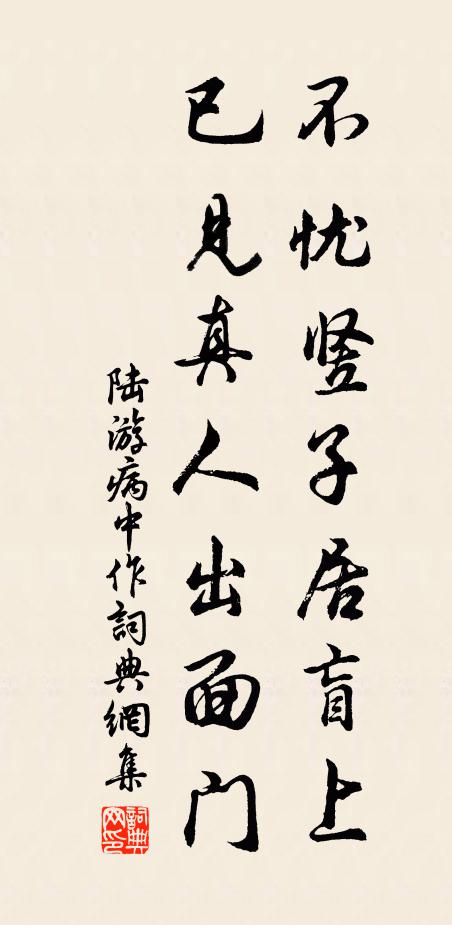 不忧竖子居盲上
已见真人出面门
陆游病中作詞典網集
詞典網印